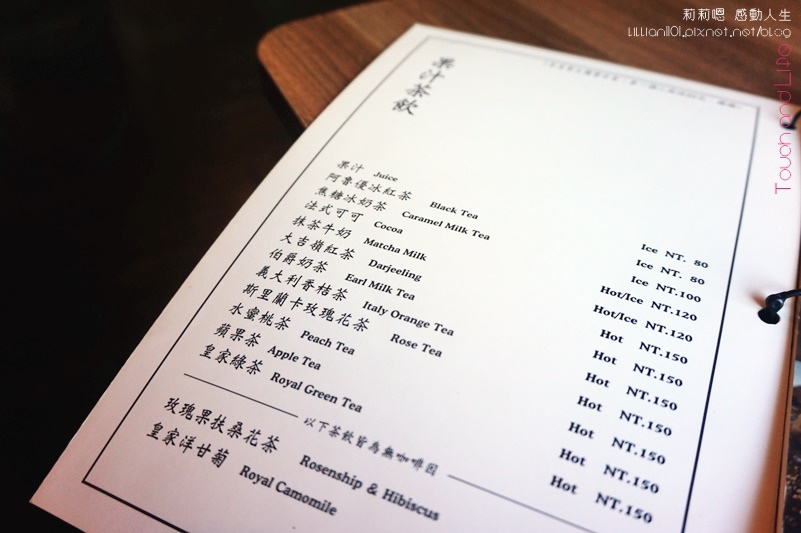 莉莉嗯 感動人生
Lillian1101.pixnet.net/blog
Touch and Life
果汁茶飲
果汁 Juice Ice NT. 80
阿魯優冰紅茶 Black Tea Ice NT. 80
焦糖冰奶茶 Caramel Milk Tea Ice NT.100
法式可可 Cocoa Hot/Ice NT.120
抹茶牛奶 Matcha Milk Hot/Ice NT.120
大吉嶺紅茶 Darjeeling Hot NT.150
伯爵奶茶 Earl Milk Tea Hot NT.150
義大利香桔茶 Italy Orange Tea Hot NT.150
斯里蘭卡玫瑰花茶 Rose Tea Hot NT.150
水蜜桃茶 Peach Tea Hot NT.150
蘋果茶 Apple Tea Hot NT.150
皇家綠茶 Royal Green Tea Hot NT.150
以下茶飲皆為無咖啡因
玫瑰果扶桑花茶 Rosenship & Hibiscus
皇家洋甘菊 Royal Camomile